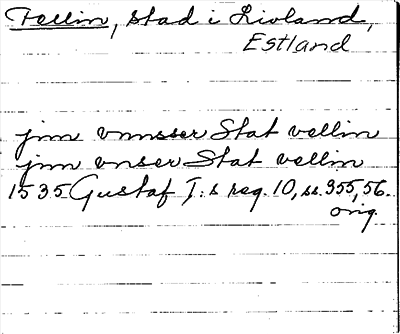 Fellin, stad i Livland,
Estland
jnn vnnsser Stat vellin
jnn vnser Stat vellin
1535 Gustaf I:s reg. 10, ss. 355, 56.
orig.